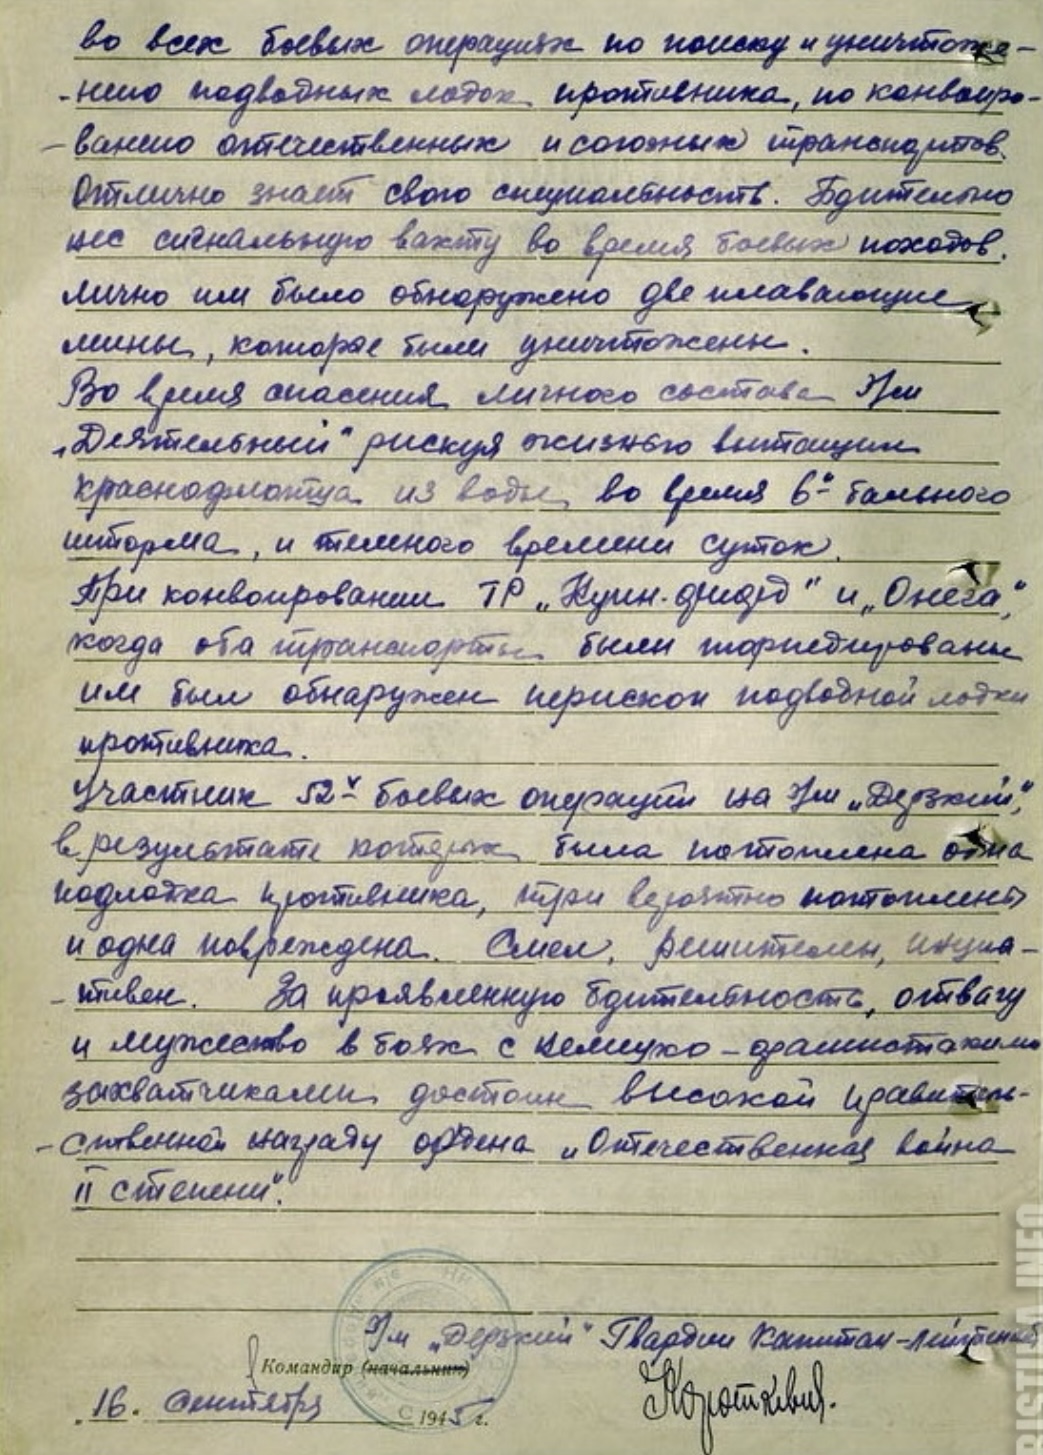 во всех боевых операциях по поиску и уничтоже-
-нию подводных лодок противника, по конвоиро-
-ванию отечественных и союзных транспортов.
Отлично знает свою специальность. Бдительно
нес сигнальную вахту во время боевых походов.
Лично им было обнаружено две плавающие
мины, которые были уничтожены.
Во время спасения личного состава Э/м
„Деятельный" рискуя жизнью вытащил
краснофлотца из воды, во время 6й бального
шторма, и темного времени суток.
При конвоировании ТР „ " и „Онега",
когда оба транспорты были торпедированы
им был обнаружен перископ подводной лодки
противника.
Участник 52х боевых операций на Э/м „Дерзкий",
в результате которых была потоплена одна
подлодка противника, три вероятно потоплены
и одна повреждена. Смел, решителен, инициа-
-тивен. За проявленную бдительность, отвагу
и мужество в боях с немецко-фашистскими
захватчиками достоин высокой правитель-
-ственной награды ордена „Отечественная война
II степени".
Э/м „Дерзкий" Гвардии Капитан-лейтенант
Командир (начальник)
16. Сентября 1945 г.
RISTINA INFO